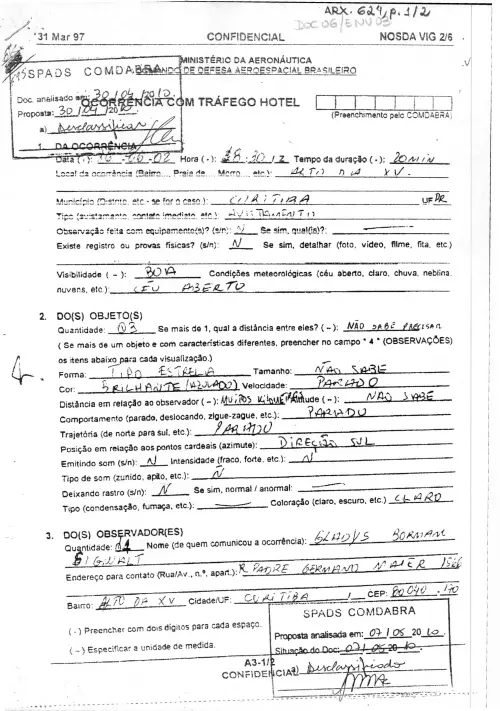 ARX. 624, p. 1/2
DOC 06/ENV 03
31 Mar 97 CONFIDENCIAL NOSDA VIG 2/6
MINISTÉRIO DA AERONÁUTICA
SPADS COMDABRA COMANDO DE DEFESA AEROESPACIAL BRASILEIRO
Doc. analisado em: 30/04/2010
OCORRÊNCIA COM TRÁFEGO HOTEL
Proposta: 30/04/2010
(Preenchimento pelo COMDABRA)
a) Desclassificar
1. DA OCORRÊNCIA
Data (-): Hora (-): Tempo da duração (-): 20 MIN
Local da ocorrência (Bairro, Praia de, Morro, etc.): ALTO DA XV.
Município (Distrito, etc - se for o caso): CURITIBA UF PR
Tipo (avistamento, contato imediato, etc.): AVISTAMENTO
Observação feita com equipamento(s)? (s/n): N Se sim, qual(is)?:
Existe registro ou provas físicas? (s/n): N Se sim, detalhar (foto, vídeo, filme, fita, etc.)
Visibilidade ( ~ ): BOA Condições meteorológicas (céu aberto, claro, chuva, neblina,
nuvens, etc.): CEU ABERTO
2. DO(S) OBJETO(S)
Quantidade: 03 Se mais de 1, qual a distância entre eles? ( ~ ): NÃO SABE PRECISAR
( Se mais de um objeto e com características diferentes, preencher no campo " 4 " (OBSERVAÇÕES)
os itens abaixo para cada visualização.)
Forma: TIPO ESTRELA Tamanho: NÃO SABE
Cor: BRILHANTE (AZULADO) Velocidade: PARADO
Distância em relação ao observador ( ~ ): MUITOS Altitude ( ~ ): NÃO SABE
Comportamento (parado, deslocando, zigue-zague, etc.): PARADO
Trajetória (de norte para sul, etc.): PARADO
Posição em relação aos pontos cardeais (azimute): DIREÇÃO SUL
Emitindo som (s/n): N Intensidade (fraco, forte, etc.): N
Tipo de som (zunido, apito, etc.): N
Deixando rastro (s/n): N Se sim, normal / anormal:
Tipo (condensação, fumaça, etc.): Coloração (claro, escuro, etc.) CLARO
3. DO(S) OBSERVADOR(ES)
Quantidade: 01 Nome (de quem comunicou a ocorrência): GLADYS BORMANN
Endereço para contato (Rua/Av., n.º, apart.): R. PADRE GERMANO
Bairro: ALTO DA XV Cidade/UF: CURITIBA / CEP: 80040
SPADS COMDABRA
( - ) Preencher com dois dígitos para cada espaço.
Proposta analisada em: 07/05/2010
( ~ ) Especificar a unidade de medida.
Situação do Doc: 07/05/2010
A3-1/2
CONFIDENCIAL
a) Desclassificado